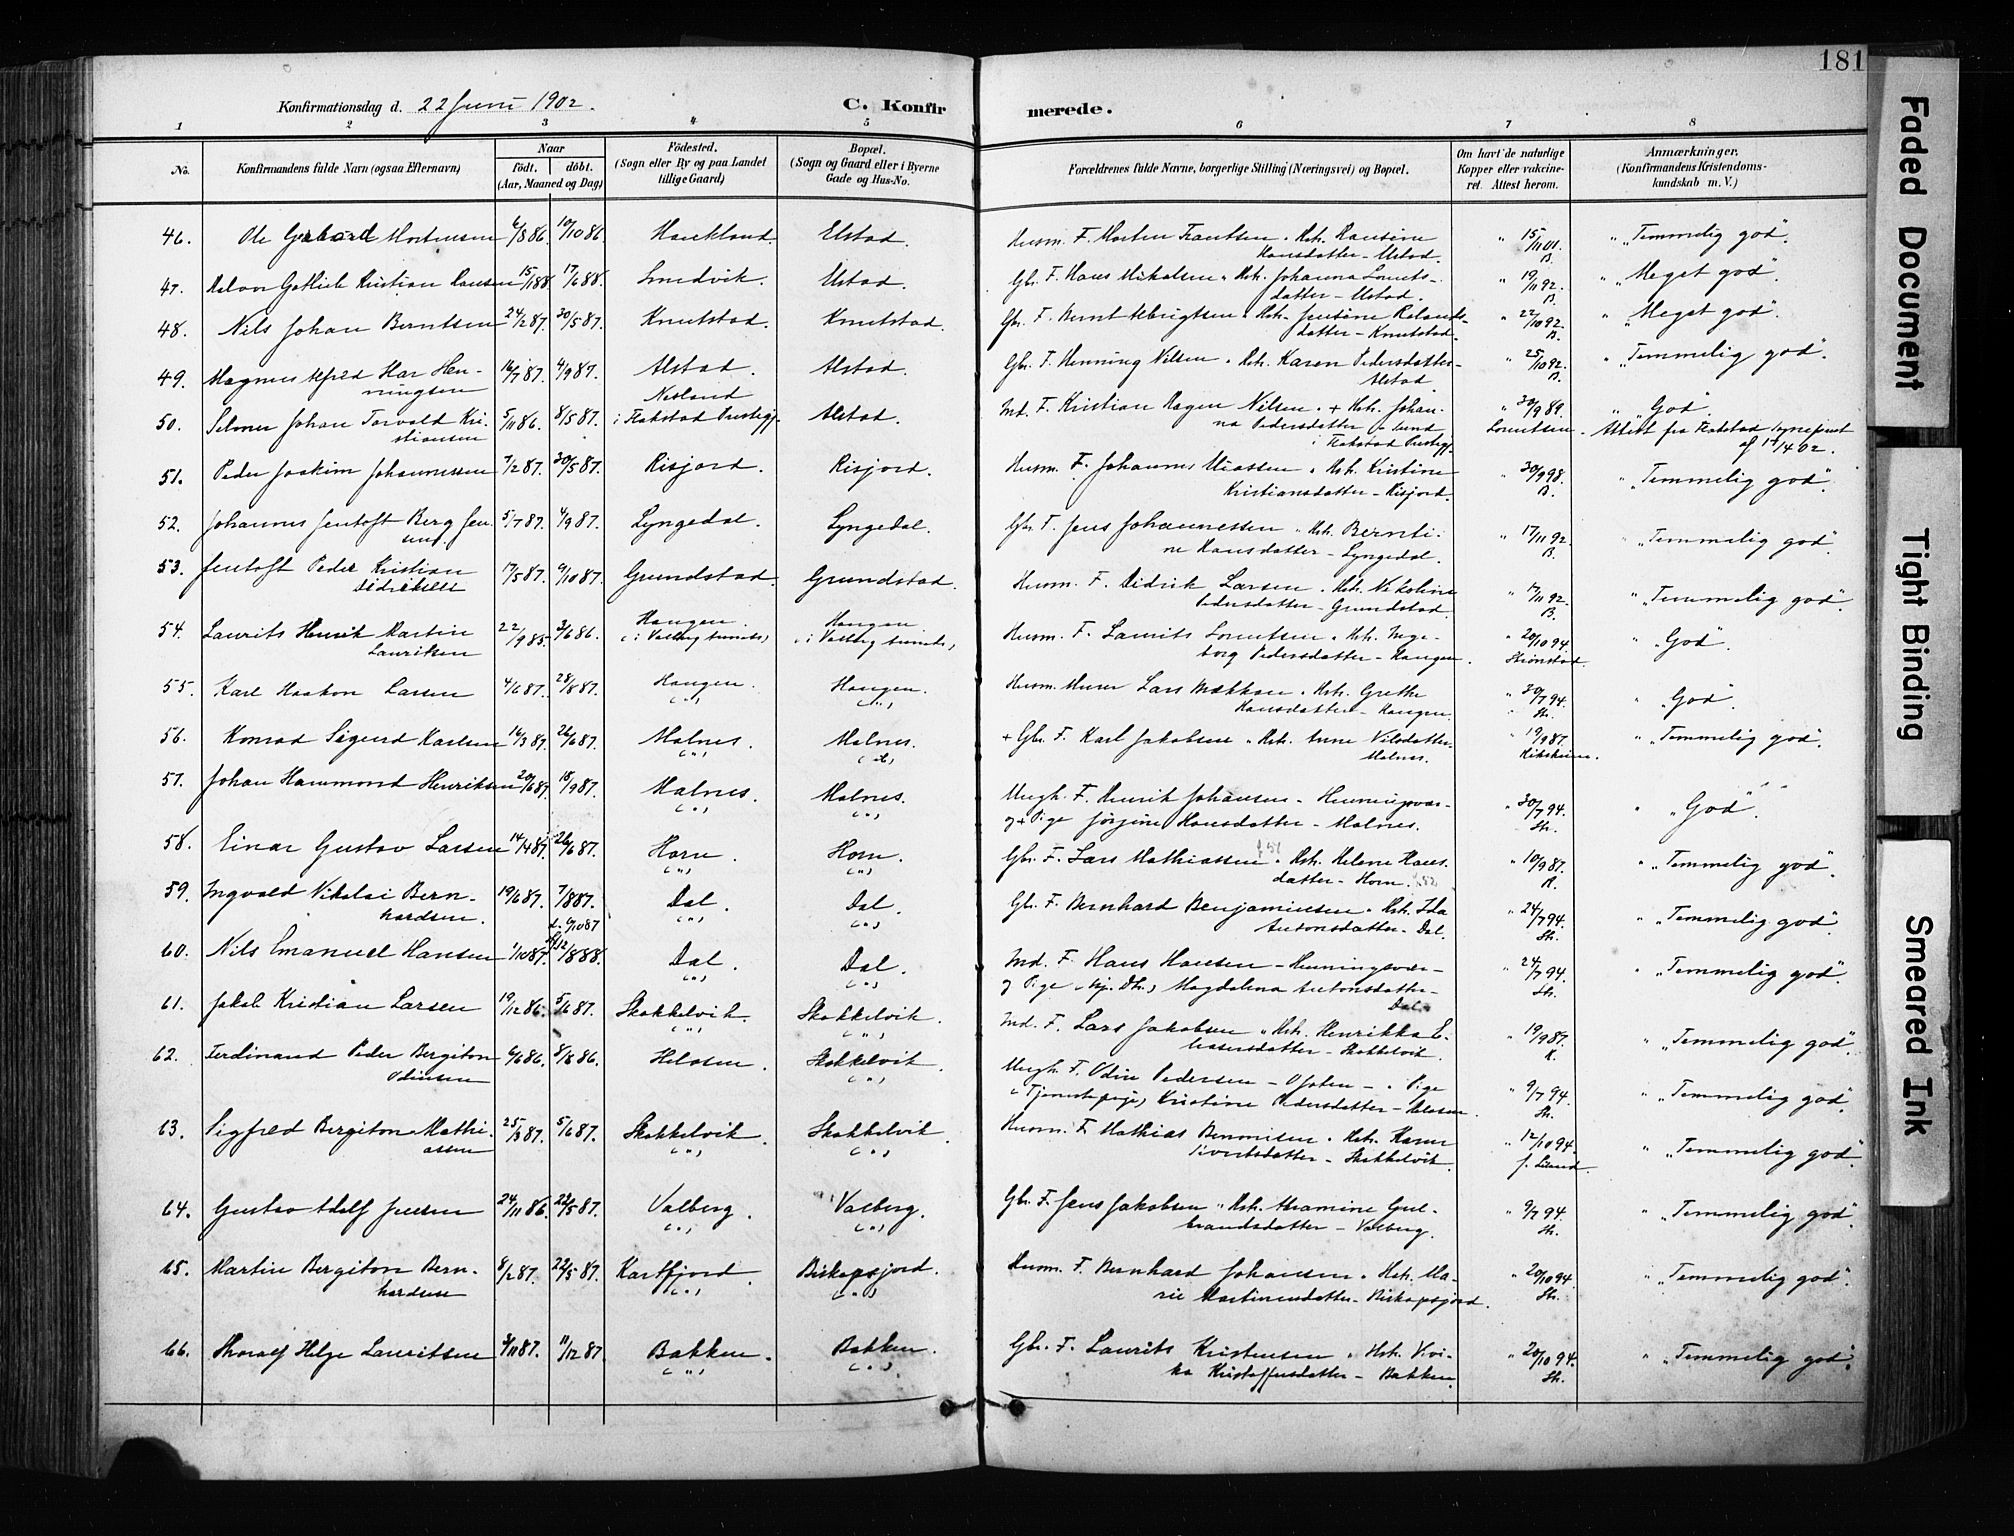 181
Konfirmationsdag d. 22 Juni 1902.
C. Konfirmerede.
1 2 3 4 5 6 7 8
No.
Konfirmandens fulde Navn (ogsaa Efternavn)
Naar
født. døbt.
(Aar, Maaned og Dag)
Fødested.
(Sogn eller By og paa Landet
tillige Gaard)
Bopæl.
(Sogn og Gaard eller i Byerne
Gade og Hus-No.
Forældrenes fulde Navne, borgerlige Stilling (Næringsvei) og Bopæl.
Om havt de naturlige
Kopper eller vakcine-
ret. Attest herom.
Anmærkninger.
(Konfirmandens Kristendoms-
kundskab m. V.)
46. Ole Gerhard Mortensen 6/8 86. 10/10 86. Haukland. Elstad. Husm. F. Morten Frantsen. Hst. Hansine " 15/11 01. " "Temmelig god".
Hansdatter - Ulstad. B.
47. Gotlieb Kristian Hansen 15/1 88. 17/6 88. Smedvik. Ulstad. Gbr. F. Hans Mikalsen. Hst. Johanna Lorents- " 19/11 92. " "Meget god".
datter - Ulstad. B.
48. Nils Johan Berntsen 24/2 87. 30/5 87. Knutstad. Knutstad. Gbr. F. Bernt Albrigtsen. Hst. Jensine Rolands- " 22/10 92. " "Meget god".
datter - Knutstad. B.
49. Magnus Alfred Hen- 16/7 87. 4/9 87. Alstad. Alstad. Gbr. F. Henning Nilsen. Hst. Karen Pedersdatter- " 25/10 92. " "Temmelig god".
ningsen Alstad. B.
50. Selmer Johan Torvald Kri- 5/11 86. 8/5 87. Nesland i Flakstad Prestegj. Alstad. Ind. F. Kristian Hagen Nilsen. + Hst. Johan- " 30/9 89. " "God".
stiansen na Pedersdatter - Sund Lorentsen. Attest fra Flakstad Sognepræst
i Flakstad Prestegj. af 14/4 02.
51. Peder Joakim Johannessen 7/2 87. 30/5 87. Risjord. Risjord. Husm. F. Johannes Eliassen. Hst. Kristine " 30/9 98. " "Temmelig god".
Kristiansdatter - Risjord. B.
52. Johannes Jentoft Berg Jen- 5/7 87. 4/9 87. Lyngedal. Lyngedal. Gbr. F. Jens Johannessen. Hst. Bernti- " 17/11 92. " "Temmelig god".
sen. ne Hansdatter - Lyngedal. B.
53. Jentoft Peder Kristian 17/5 87. 9/10 87. Grundstad. Grundstad. Husm. F. Didrik Larsen. Hst. Nikoline " 17/11 92. " "Temmelig god".
Didriksen Pedersdatter - Grundstad. B.
54. Laurits Henrik Martin 22/9 85. 3/6 86. Haugen. Haugen Husm. F. Laurits Lorentsen. Hst. Inge- " 20/10 94. " "God".
Lauritsen (i Valberg sunds) (i Valberg sunds) borg Pedersdatter - Haugen. Strønstad.
55. Karl Haakon Larsen 4/6 87. 28/8 87. Haugen. Haugen. Husm. Murer Lars Mækken. Hst. Grethe " 30/7 94. " "God".
(") (") Hansdatter - Haugen. Str.
56. Konrad Sigurd Karlsen 16/3 87. 26/6 87. Malnes. Malnes. + Gbr. F. Karl Jakobsen. Hst. Anne Nilsdatter. " 19/9 87. " "Temmelig god".
(") (") Malnes.
57. Johan Hammond Henriksen 20/6 87. 18/9 87. Malnes. Malnes. Ungk. F. Henrik Johansen - Henningsvær- " 30/7 94. " "God".
(") (") og + Pige Jørgine Hansdatter - Malnes. Str.
58. Einar Gustav Larsen 14/4 87. 26/6 87. Horn. Horn. Gbr. F. Lars Mathiassen. Hst. Helene Hans- " 10/9 87. " "Temmelig god".
(") (") datter - Horn. K.
59. Ingvald Nikolai Bern- 19/6 87. 7/8 87. Dal. Dal. Gbr. F. Bernhard Benjaminsen. Hst. Ida " 24/7 94. " "Temmelig god".
hardsen. (") (") Antonsdatter - Dal. Str.
60. Nils Emanuel Hansen 1/10 87. 12/8 88. Dal. Dal. Ind. F. Hans Hansen - Henningsvær- " 24/7 94. " "Temmelig god".
(") (") og Pige Magdalena Antonsdatter- Str.
Dal.
61. Jakob Kristian Larsen 19/12 86. 5/6 87. Skokkelvik. Skokkelvik. Ind. F. Lars Jakobsen. Hst. Henrikka E- " 19/9 87. " "Temmelig god".
(") (") liasersdatter - Skokkelvik. K.
62. Ferdinand Peder Bergiton 6/6 86. 8/8 86. Helosen. Skokkelvik. Ungk. F. Odin Pedersen - Ofoten - . Pige " 9/7 94. " "Temmelig god".
Odinsen (") (Tjenestepige) Kristine Pedersdatter - Helosen. Str.
63. Sigfred Bergiton Mathi- 25/3 87. 5/6 87. Skokkelvik. Skokkelvik. Husm. F. Mathias Benonisen. Hst. Karen " 12/10 94. " "Temmelig god".
assen (") (") Sivertsdatter - Skokkelvik.
64. Gustav Adolf Jensen 24/11 86. 22/5 87. Valberg. Valberg. Gbr. F. Jens Jakobsen. Hst. Abramine Gul- " 9/7 94. " "Temmelig god".
(") (") brandsdatter - Valberg. Str.
65. Martin Bergiton Bern- 8/2 87. 22/5 87. Kartfjord. Biskopsjord. Husm. F. Bernhard Johansen. Hst. Ma- " 20/10 94. " "Temmelig god".
hardsen (") (") rie Martinusdatter - Biskopsjord. Str.
66. Thoralf Helge Lauritsen 3/11 87. 11/12 87. Bakken. Bakken. Gbr. F. Laurits Kristensen. Hst. Kvi- " 20/10 94. " "Temmelig god".
(") (") ka Kristoffersdatter - Bakken. Str.
Faded Document
Tight Binding
Smeared Ink